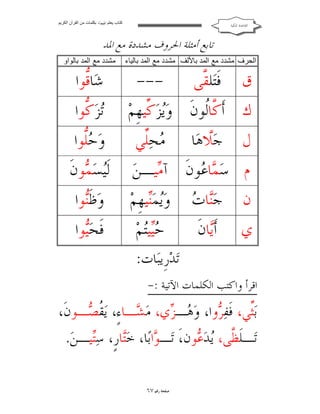 كتاب يعلم تهجيت بكلمات من القرآن الكريم
تابع أمثلة الحروف مشددة مع المد
الحرف مشدد مع المد بالألف مشدد مع المد بالياء مشدد مع المد بالواو
ق فَتَلَقَّى --- شَاقُّوا
ك أَكَّالُونَ وَيُزَكِّيهِمْ تُزَكُّوا
ل جَلَّاهَا مُحِلِّي وَحُلُّوا
م سَمَّاعُونَ آمِّيـــنَ لَيُسَمُّونَ
ن جَنَّاتُ وَيُمَنِّيهِمْ وَظَنُّوا
ي أَيَّانَ حُيِّيتُمْ فَحَيُّوا
تَدْرِيبَات:
اقرأ واكتب الكلمات الآتية :-
بَثِّي، فَفِرُّوا، وَهُـــزِّي، مَشَّـــاءٍ، يَقُصُّـــونَ،
تَـــلَظَّى، يُدَعُّونَ، تَـــوَّابًا، خَتَّارٍ، سِتِّيـــنَ.
صفحه رقم ٦٧